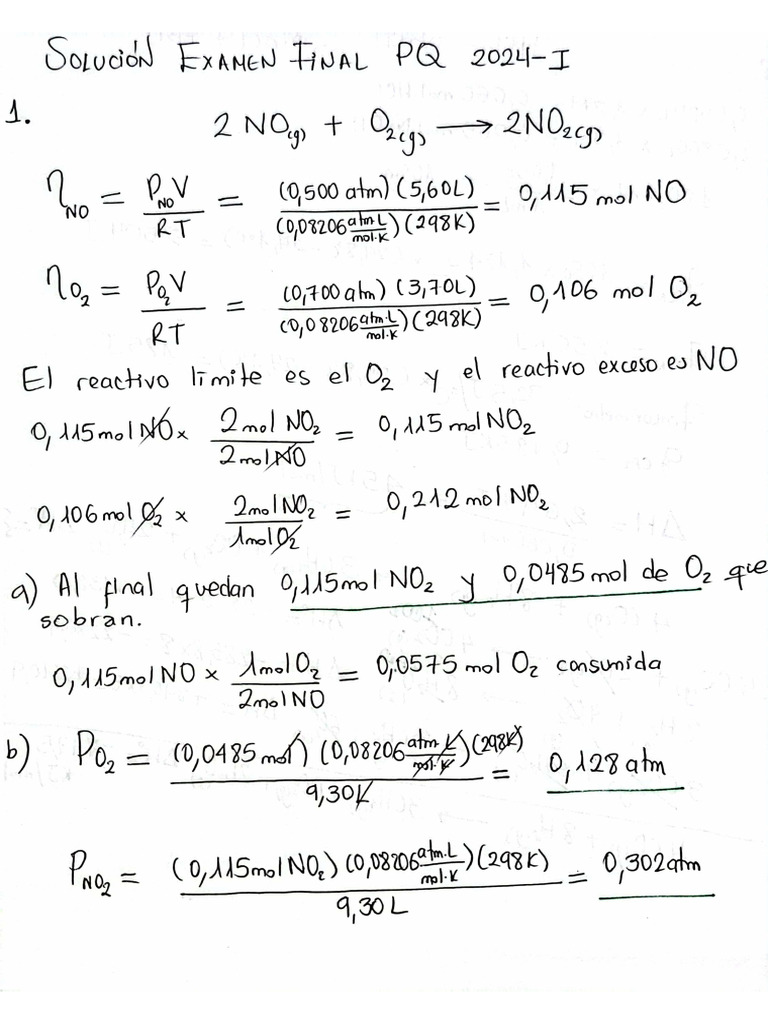 SOLUCIÓN EXAMEN FINAL PQ 2024-I
1. 2 NO(g) + O2(g) ⟶ 2NO2(g)
ηNO = PNOV / RT = (0,500 atm)(5,60L) / (0,08206 atm·L/mol·K)(298K) = 0,115 mol NO
ηO2 = PO2V / RT = (0,700 atm)(3,70L) / (0,08206 atm·L/mol·K)(298K) = 0,106 mol O2
El reactivo límite es el O2 y el reactivo exceso es NO
0,115 mol NO x 2 mol NO2 / 2 mol NO = 0,115 mol NO2
0,106 mol O2 x 2 mol NO2 / 1 mol O2 = 0,212 mol NO2
a) Al final quedan 0,115 mol NO2 y 0,0485 mol de O2 que
sobran.
0,115 mol NO x 1 mol O2 / 2 mol NO = 0,0575 mol O2 consumida
b) PO2 = (0,0485 mol)(0,08206 atm·L/mol·K)(298K) / 9,30L = 0,128 atm
PNO2 = (0,115 mol NO2)(0,08206 atm·L/mol·K)(298K) / 9,30 L = 0,302 atm